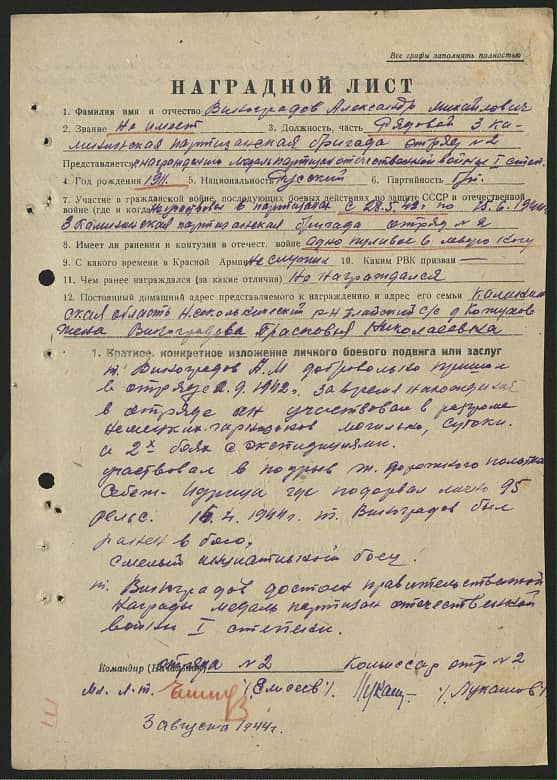 Все графы заполнять полностью
НАГРАДНОЙ ЛИСТ
1. Фамилия имя и отчество Виноградов Александр Михайлович
2. Звание Не имеет 3. Должность, часть Рядовой 3 Ка-
лининская партизанская бригада отряд № 2
Представляется к награждению медаль партизан отечественной войны I степ.
4. Год рождения 5. Национальность Русский 6. Партийность
7. Участие в гражданской войне, последующих боевых действиях по защите СССР и отечественной
войне (где и когда) по
3 Калининская партизанская бригада отряд № 2
8. Имеет ли ранения и контузии в отечест. войне одно пулевое в левую ногу
9. С какого времени в Красной Армии Не служил 10. Каким РВК призван —
11. Чем ранее награждался (за какие отличия) Не награждался
12. Постоянный домашний адрес представляемого к награждению и адрес его семьи Калинин-
ская область р-н с/с д.
жена Виноградова Прасковья Николаевна
1. Краткое, конкретное изложение личного боевого подвига или заслуг
т. Виноградов А.М добровольно пришел
в отряд 2.9.1942г. За время нахождения
в отряде он участвовал в разгроме
немецких гарнизонов могильно, Сутоки.
и 2х боях с экспедициями.
участвовал в подрыв ж. дорожного полотна
Себеж - Идрица где подорвал лично 95
рельс. 1944г. т. Виноградов был
ранен в бою.
Смелый боец.
т. Виноградов достоен правительственной
награды медаль партизан отечественной
войны I степени.
Командир (Начальник) отряда № 2 Комиссар отр № 2
Мл. л-т. (Елисеев) (Лукашов)
3 августа 1944г.